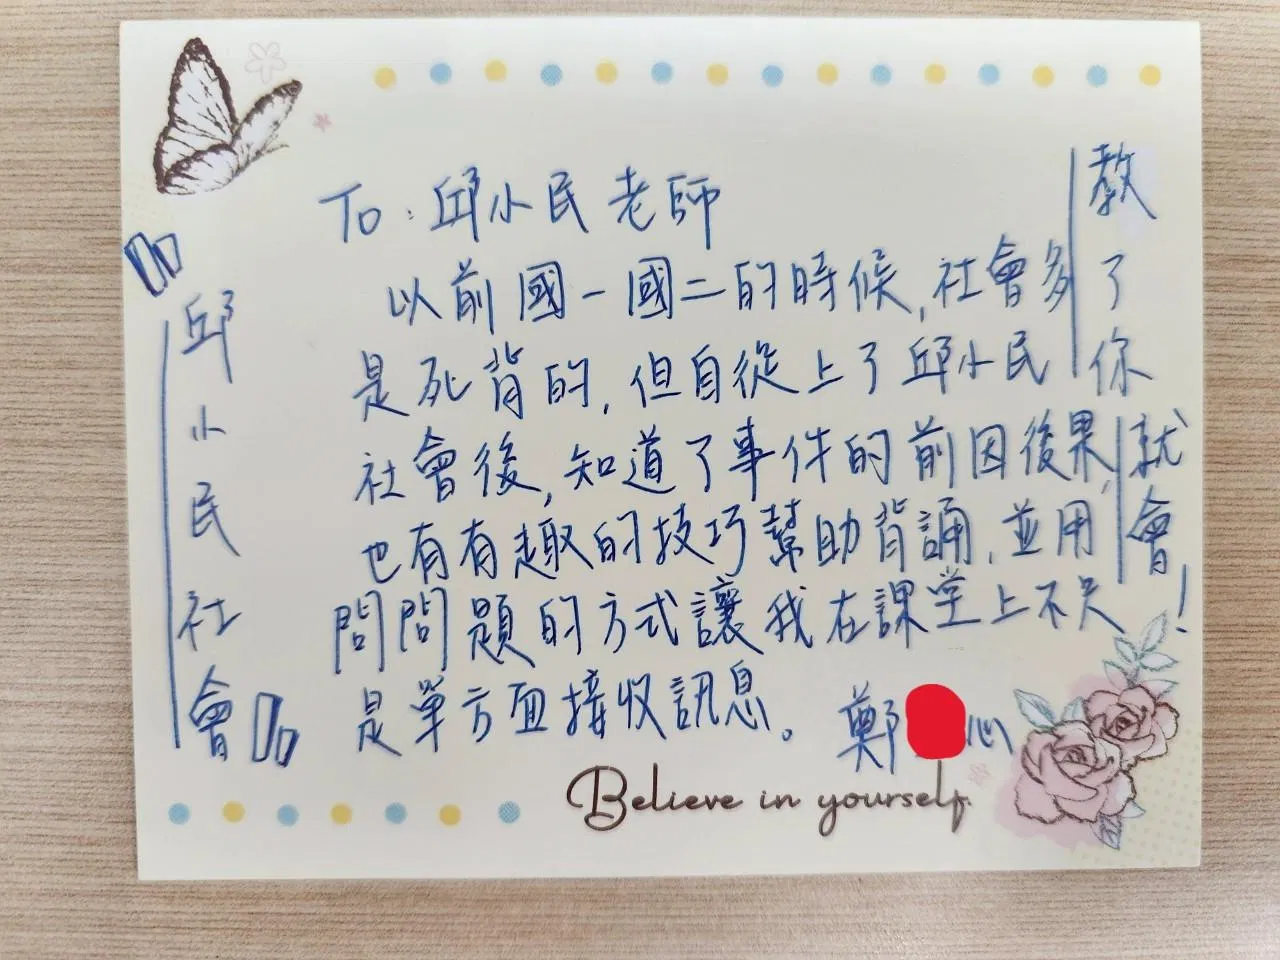 To：邱小民老師
以前國一國二的時候，社會多
是死背的，但自從上了邱小民
社會後，知道了事件的前因後果，
也有有趣的技巧幫助背誦，並用
問問題的方式讓我在課堂上不只
是單方面接收訊息。
鄭 心
『邱小民社會』
教了你就會！
Believe in yourself